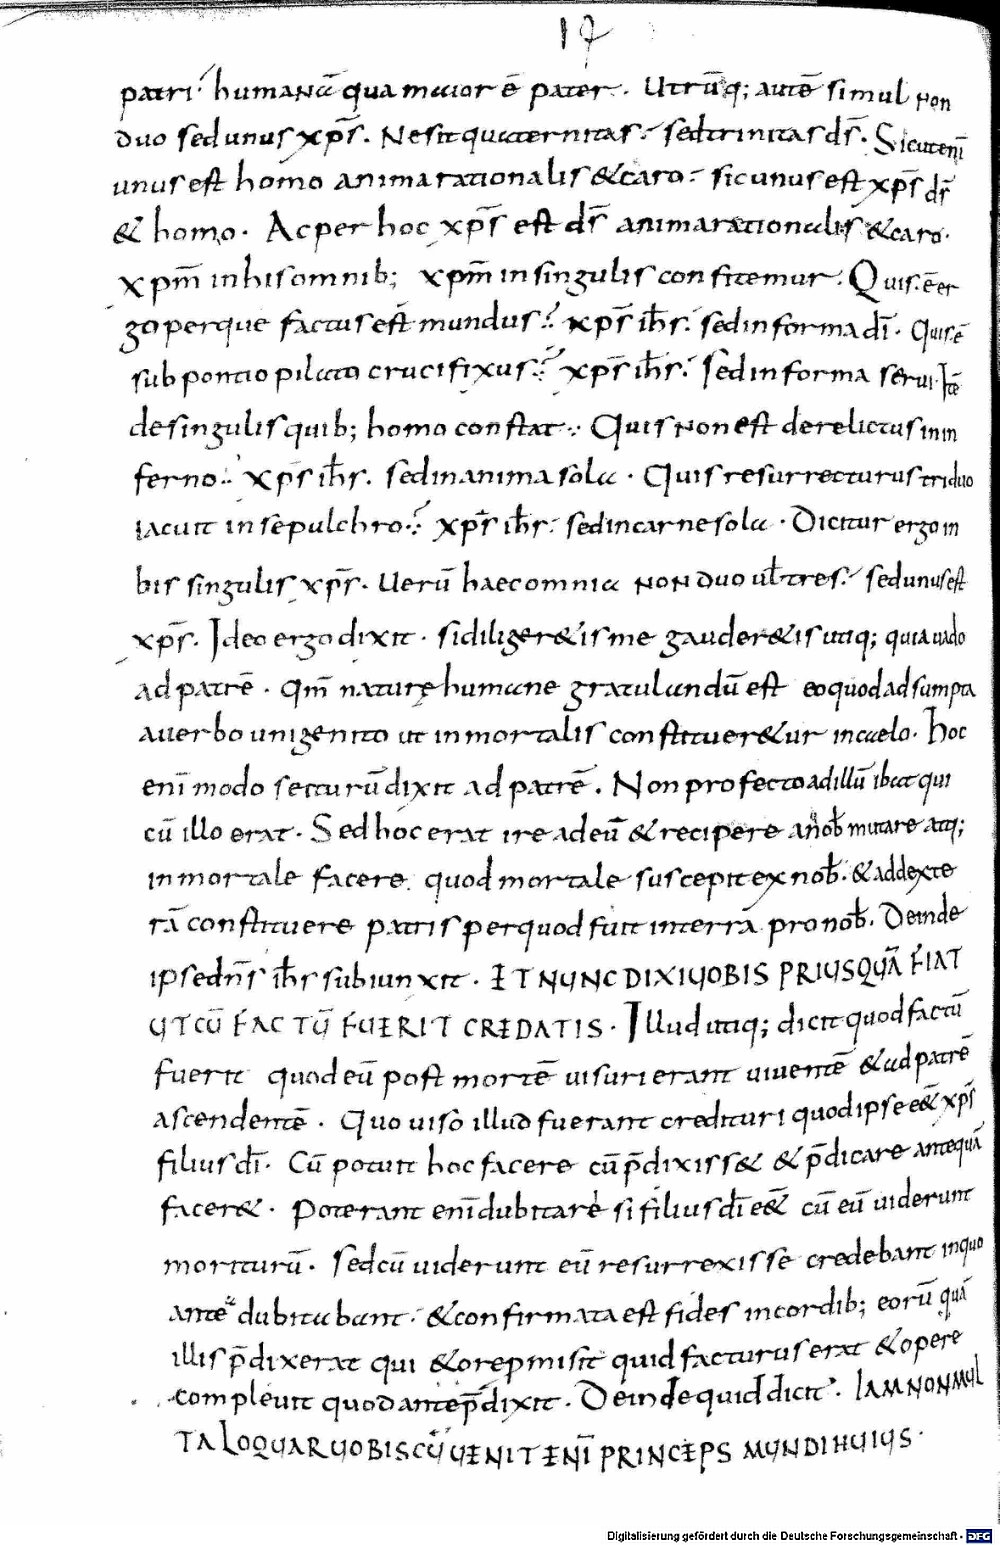 17
patri. humanā qua maior ē pater. Utrūq; autē simul non
duo sed unus xp̄s. Ne sit quaternitas. sed trinitas d̄s. Sicut enī
unus est homo anima rationalis & caro. sic unus est xp̄s d̄s
& homo. Ac per hoc xp̄s est d̄s anima rationalis & caro.
xp̄m in his omnib; xp̄m in singulis confitemur. Quis ē er
go per que factus est mundus? xp̄s ih̄s. sed in forma dī. Quis ē
sub pontio pilato crucifixus? xp̄s ih̄s. Sed in forma serui. Itē
de singulis quib; homo constat. Quis non est derelictus in in
ferno. xp̄s ih̄s. sed in anima sola. Quis resurrecturus triduo
iacuit in sepulchro? xp̄s ih̄s. sed in carne sola. Dicitur ergo in
his singulis xp̄s. Uerū haec omnia non duo ul̄ tres. sed unus est
xp̄s. Ideo ergo dixit. si diliger&is me gauder&is utiq; quia uado
ad patrē. Qm̄ naturę humane gratulandū est eo quod adsumpta
a uerbo unigenito ut inmortalis constituer&ur in caelo. hoc
enī modo se iturū dixit ad patrē. Non profecto ad illū ibat qui
cū illo erat. Sed hoc erat ire ad eū & recipere a nob̄ mutare atq;
inmortale facere quod mortale suscepit ex nob̄. & ad dexte
rā constituere patris per quod fuit in terra pro nob̄. Deinde
ipse dn̄s ih̄s subiunxit. ET NUNC DIXI UOBIS PRIUSQUĀ FIAT
UT CŪ FACTŪ FUERIT CREDATIS. Illud utiq; dicit quod factū
fuerit quod eū post mortē uisuri erant uiuentē & ad patrē
ascendentē. Quo uiso illud fuerant credituri quod ipse e&̄ xp̄s
filius dī. Cū potuit hoc facere cū p̄dixiss& & p̄dicare antequā
facer&. Poterant enī dubitare si filius dī e&̄ cū eū uiderunt
moriturū. Sed cū uiderunt eū resurrexisse credebant in quo
ante dubitabant. & confirmata est fides in cordib; eorū quā
illis p̄dixerat qui & opere quid facturus erat & opere
compleuit quod ante p̄dixit. Deinde quid dicit. IAM NON MUL
TA LOQUAR UOBISCŪ UENIT ENĪ PRINCEPS MUNDI HUIUS.
Digitalisierung gefördert durch die Deutsche Forschungsgemeinschaft - DFG